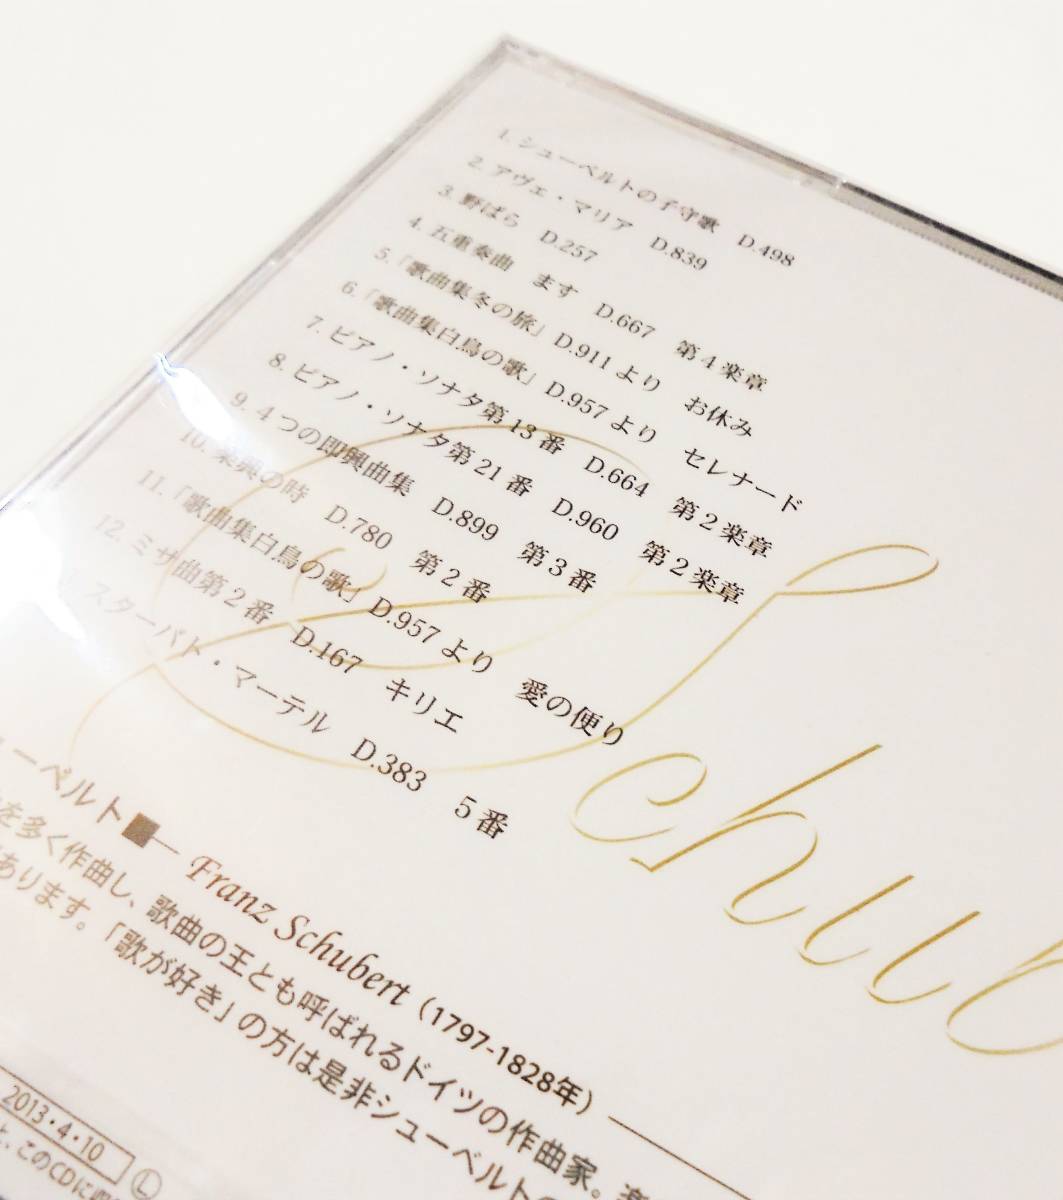 1. シューベルトの子守歌 D.498
2. アヴェ・マリア D.839
3. 野ばら D.257
4. 五重奏曲 ます D.667 第4楽章
5. 「歌曲集冬の旅」D.911より お休み
6. 「歌曲集白鳥の歌」D.957より セレナード
7. ピアノ・ソナタ第13番 D.664 第2楽章
8. ピアノ・ソナタ第21番 D.960 第2楽章
9. 4つの即興曲集 D.899 第3番
10. 楽興の時 D.780 第2番
11. 「歌曲集白鳥の歌」D.957より 愛の便り
12. ミサ曲第2番 D.167 キリエ
スターバト・マーテル D.383 5番
Schub
ーベルト■ Franz Schubert (1797-1828年)
を多く作曲し、歌曲の王とも呼ばれるドイツの作曲家。
あります。「歌が好き」の方は是非シューベルトの
2013・4・10 Ⓛ
、このCDに